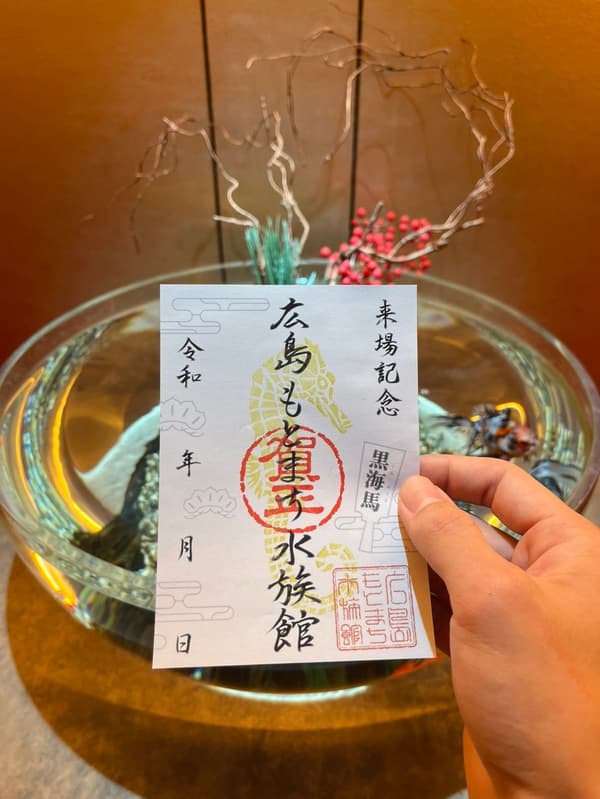 来場記念
広島もとまち水族館
賀正
黒海馬
広島
もとまち
水族館
令和 年 月 日